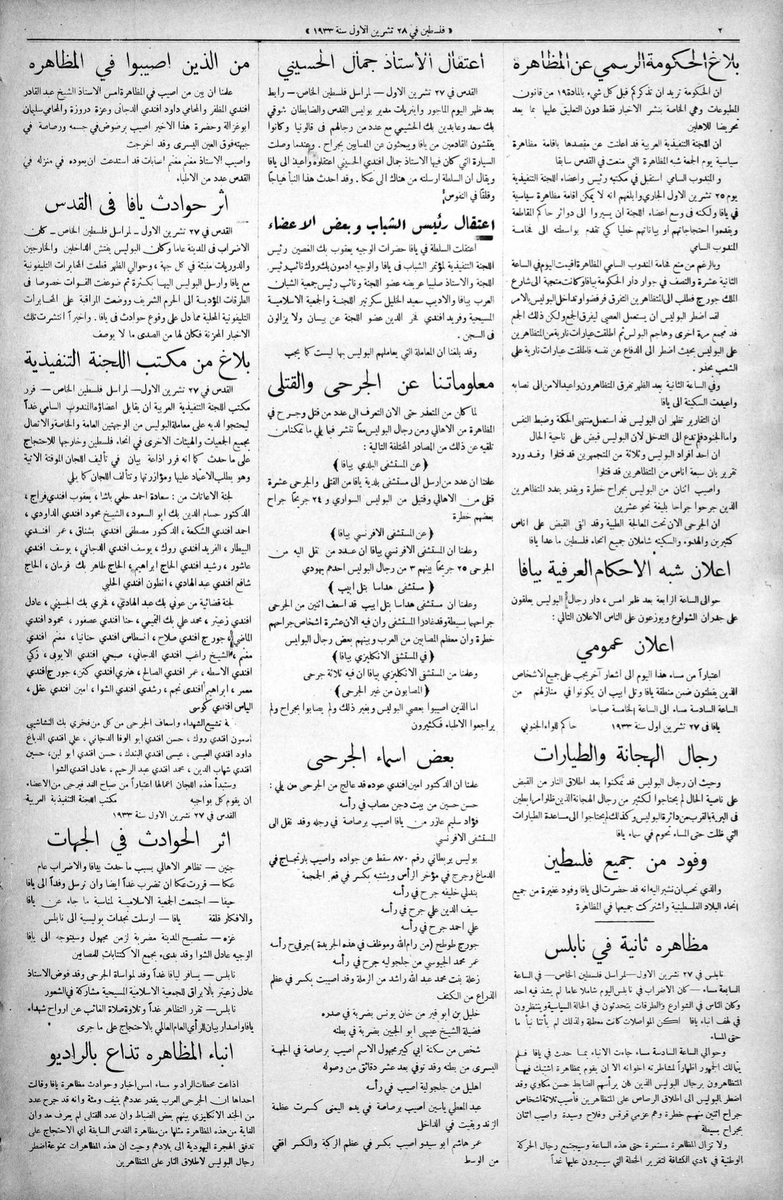 ٢
« فلسطين في ٢٨ تشرين الاول سنة ١٩٣٣ »
بلاغ الحكومة الرسمي عن المظاهرة
ان الحكومة تريد ان تذكركم قبل كل شيء بالمادة ١٩ من قانون
المطبوعات وهي الخاصة بنشر الاخبار فقط دون التعليق عليها بما يعد
تحريضا للاهلين
ان اللجنة التنفيذية العربية قد اعلنت عن مقصدها باقامة مظاهرة
سياسية يوم الجمعة شبه المظاهرة التي منعت في القدس سابقا
و المندوب السامي استقبل في مكتبه رئيس واعضاء اللجنة التنفيذية
يوم ٢٥ تشرين الاول الجاري وابلغهم انه لا يمكن اقامة مظاهرة سياسية
في يافا ولكنه في وسع اعضاء اللجنة ان يسيروا الى دوائر حاكم المقاطعة
ويقدموا احتجاجاتهم او بياناتهم خطيا كي تقدم بواسطته الى فخامة
المندوب السامي
وبالرغم من منع فخامة المندوب السامي المظاهرة اقيمت اليوم في الساعة
الثانية عشرة والنصف في جوار دار الحكومة بيافا وكانت متجهة الى شارع
الملك جورج فطلب الى المتظاهرين التفرق فرفضوا وتدخل البوليس بالامر
لقد اضطر البوليس ان يستعمل العصي ليفرق الجمع ولكن ذلك الجمع
قد تجمع مرة اخرى وهاجم البوليس ثم اطلقت عيارات نارية من المتظاهرين
على البوليس بحيث اضطر الى الدفاع عن نفسه فاطلقت عيارات نارية على
الشعب بحذر.
وفي الساعة الثانية بعد الظهر تفرق المتظاهرون واعيد الامن الى نصابه
واعيدت السكينة الى يافا
ان التقارير تظهر ان البوليس قد استعمل منتهى الحكمة وضبط النفس
واما الجنود فلم تدع الى التدخل لان البوليس قبض على ناحية الحال
ان احد افراد البوليس وثلاثة من المتجمهرين قد قتلوا وقد ورد
تقرير بان سبعة اناس من المتظاهرين قد قتلوا
واصيب اثنان من البوليس بجراح خطرة ويقدر عدد المتظاهرين
الذين جرحوا جراحا بليغة نحو عشرين
ان الجرحى الان تحت المعالجة الطبية وقد القي القبض على اناس
كثيرين والهدوء والسكينة شاملان جميع انحاء فلسطين ما عدا يافا
اعلان شبه الاحكام العرفية بيافا
حوالي الساعة الرابعة بعد ظهر امس، دار رجال البوليس يعلقون
على جدران الشوارع ويوزعون على الناس الاعلان التالي :
اعلان عمومي
اعتباراً من مساء هذا اليوم الى اشعار آخر يجب على جميع الاشخاص
الذين يقطنون ضمن منطقة يافا وتل ابيب ان يكونوا في منازلهم من
الساعة السادسة مساء الى الساعة الخامسة صباحا
يافا في ٢٧ تشرين اول سنة ١٩٣٣ حاكم اللواء الجنوبي
رجال الهجانة والطيارات
وحيث ان رجال البوليس قد تمكنوا بعد اطلاق النار من القبض
على ناصية الحال لم يحتاجوا لكثير من رجال الهجانة الذين ظلوا مرابطين
في البرية بالقرب من دائرة البوليس وكذلك لم يحتاجوا الى مساعدة الطيارات
التي ظلت حتى المساء تحوم في سماء يافا
وفود من جميع فلسطين
والذي نحب ان نشير اليه انه قد حضرت الى يافا وفود غفيرة من جميع
انحاء البلاد الفلسطينية واشتركت جميعها في المظاهرة
مظاهره ثانية في نابلس
نابلس في ٢٧ تشرين الاول — لمراسل فلسطين الخاص — في الساعة
السابعة مساء — كان الاضراب في نابلس اليوم شاملا عاما لم يشذ فيه احد
وكان الناس في الشوارع والطرقات يتحدثون في الحالة السياسية وينتظرون
في لهف انباء يافا لكن المواصلات كانت معطلة ولذلك لم يأتنا نبأ ما
حتى المساء
وحوالي الساعة السادسة مساء جاءت الانباء بما حدث في يافا فلم
يتمالك الجمهور اظهاراً لمشاطرته اخوانه الا ان يقوم بمظاهرة اشتبك فيها
المتظاهرون برجال البوليس الذين كان يرأسهم الضابط حسن مكاوي وقد
اضطر البوليس الى اطلاق الرصاص على المتظاهرين فأصيب ثلاثة اشخاص
جراح اثنين منهم خطرة وهم عزمي قرقس وفلاح وسيدة واصيب اثنان
بجراح بسيطة
ولا تزال المظاهرة مستمرة حتى هذه الساعة وسيجتمع رجال الحركة
الوطنية في نادي الكشافة لتقرير الخطة التي سيسيرون عليها غداً
اعتقال الأستاذ جمال الحسيني
القدس في ٢٧ تشرين الاول — لمراسل فلسطين الخاص — رابط
بعد ظهر اليوم الماجور وايتريات مدير بوليس القدس والضابطان شوقي
بك سعد وعابدين بك الحشيمي مع عدد من رجالهم في قالونيا وكانوا
يفتشون القادمين من يافا ويبحثون عن المصابين بجراح. وعندما وصلت
السيارة التي كان فيها الاستاذ جمال افندي الحسيني اعتقلوه واعيد الى يافا
ويقال ان السلطة ارسلته من هناك الى عكا. وقد احدث هذا النبأ هياجاً
وقلقاً في النفوس
اعتقال رئيس الشباب وبعض الاعضاء
اعتقلت السلطة في يافا حضرات الوجيه يعقوب بك الغصين رئيس
اللجنة التنفيذية لمؤتمر الشباب في يافا والوجيه ادمون بك روك نائب رئيس
اللجنة والاستاذ صليبا عريضه عضو اللجنة و نائب رئيس جمعية الشبان
العرب بيافا والاديب سعيد الخليل سكرتير اللجنة والجمعية الاسلامية
المسيحية وفريد افندي فخر الدين عضو اللجنة عن بيسان ولا يزالون
في السجن .
وقد بلغنا ان المعاملة التي يعاملهم البوليس بها ليست كما يجب
معلوماتنا عن الجرحى والقتلى
لما كان من المتعذر حتى الان التعرف الى عدد من قتل وجرح في
المظاهرة من الاهالي ومن رجال البوليس معاً ننشر فيما يلي ما تمكنا من
تلقيه عن ذلك من المصادر المختلفة التالية :
( عن المستشفى البلدي بيافا )
علمنا ان عدد من ارسل الى مستشفى بلدية يافا من القتلى والجرحى عشرة
قتلى من الاهالي وقتيل من البوليس السواري و ٢٤ جريحًا جراح
بعضهم خطرة
( عن المستشفى الافرنسي بيافا )
وعلمنا ان المستشفى الافرنسي بيافا ان عدد من نقل اليه من
الجرحى ٢٥ جريحًا بينهم ٣ من رجال البوليس احدهم يهودي
( مستشفى هداسا بتل ابيب )
وعلمنا ان مستشفى هداسا بتل ابيب قد اسعف اثنين من الجرحى
جراحهما بسيطة وقد غادرا المستشفى وان فيه الان عشرة اشخاص جراحهم
خطرة وان معظم المصابين من العرب وبينهم بعض رجال البوليس
( في المستشفى الانكليزي بيافا )
وعلمنا من المستشفى الانكليزي بيافا ان فيه ثلاثة جرحى
( المصابون من غير الجرحى )
اما الذين اصيبوا بعصي البوليس وبغير ذلك ولم يصابوا بجراح ولم
يراجعوا الاطباء فكثيرون
بعض اسماء الجرحى
علمنا ان الدكتور امين افندي عوده قد عالج من الجرحى من يلي :
حسن حسين من بيت دجن مصاب في رأسه
فؤاد سليم عازر من يافا اصيب برصاصة في رجله وقد نقل الى
المستشفى الافرنسي
بوليس بريطاني رقم ٨٧٠ سقط عن جواده واصيب بارتجاج في
الدماغ وجرح في مؤخر الرأس ويشتبه بكسر في قعر الجمجمة
بندلي خليفه جرح في رأسه
سيف الدين علي جرح في رأسه
علي احمد جرح في رأسه
جورج طوطح (من رام الله وموظف في هذه الجريدة ) جرح في رأسه
عمر محمد الجيوسي من جلجوليه جرح في رأسه
زعلة بنت محمد عبد الله راشد من الرملة وقد اصيبت بكسر في عظم
الذراع من الكتف
خليل بن ابو قير من خان يونس بضربة في صدره
فضيلة الشيخ عيسى ابو الجبين بضربة في بطنه
شخص من سكنة ابي كبير مجهول الاسم اصيب برصاصة في الجهة
اليسرى من بطنه وقد توفي بعد عشر دقائق من وصوله
اهليل من جلجولية اصيب في رأسه
عبد المعطي ياسين اصيب برصاصة في يده اليمنى كسرت عظمة
الزند وبقيت في الداخل
عمر هاشم ابو سيدو اصيب بكسر في عظم الركبة والكسر افقي
من الوسط
من الذين اصيبوا في المظاهره
علمنا ان بين من اصيب في المظاهرة امس الاستاذ الشيخ عبد القادر
افندي المظفر والمحامي داود افندي الدجاني وعزة دروزة والمحامي سليمان
ابو غزالة وحضرة هذا الاخير اصيب برضوض في جسمه ورصاصة في
جبهته فوق العين اليسرى وقد اخرجت
واصيب الاستاذ مغنم مغنم اصابات قد استدعت ان يعوده في منزله في
القدس عدد من الاطباء
اثر حوادث يافا في القدس
القدس في ٢٧ تشرين الاول — لمراسل فلسطين الخاص — كان
الاضراب في المدينة عاما وكان البوليس يفتش الداخلين والخارجين
والدوريات منبثة في كل جهة ، وحوالي الظهر قطعت المخابرات التليفونية
مع يافا وارسل بوليس اليها بكثرة ثم ضوعفت القوات خصوصا في
الطرقات المؤدية الى الحرم الشريف ووضعت المراقبة على المخابرات
التليفونية المحلية مما دل على وقوع حوادث في يافا . واخيراً انتشرت تلك
الاخبار المحزنة فكان لها من الصدى ما لا يوصف
بلاغ من مكتب اللجنة التنفيذية
القدس في ٢٧ تشرين الاول— لمراسل فلسطين الخاص — قرر
مكتب اللجنة التنفيذية العربية ان يقابل اعضاؤه المندوب السامي غداً
ليحتجوا لديه على معاملة البوليس من الوجهتين العامة والخاصة والاتصال
بجميع الجمعيات والهيئات الاخرى في انحاء فلسطين وخارجها للاحتجاج
على ما حدث كما انه قرر اذاعة بيان في تأليف اللجان الموقتة الاتية
وهو يطلب الاعتماد عليها ومؤازرتها وتتألف اللجان كما يلي
لجنة الاعانات من : سعادة احمد حلمي باشا ، يعقوب افندي فراج ،
الدكتور حسام الدين بك ابو السعود ، الشيخ محمود افندي الداودي ،
احمد افندي الشكعة ، الدكتور مصطفى افندي بشناق ، عمر افندي
البيطار ، الفريد افندي روك ، يوسف افندي الدجاني ، يوسف افندي
عاشور ، رشيد الحاج ابراهيم ، الحاج طاهر بك قرمان ، الحاج
شافع افندي عبد الهادي ، انطون افندي الحلبي
لجنة قضائية من عوني بك عبد الهادي ، فخري بك الحسيني ، عادل
افندي زعيتر ، محمد علي بك التميمي ، حنا افندي عصفور ، محمود افندي
الماضي ، جورج افندي صلاح ، انسطاس افندي حنانيا ، مغنم افندي
مغنم ، الشيخ راغب افندي الدجاني ، صبحي افندي الايوبي ، زكي
افندي الاسطه ، عمر افندي الصالح ، هنري افندي كتن ، جورج افندي
معمر ، ابراهيم افندي نجم ، رشدي افندي الشوا ، امين افندي عقل ،
الياس افندي كوسى
لجنة تشييع الشهداء واسعاف الجرحى من كل من فخري بك النشاشيبي
ادمون افندي روك ، حسن افندي ابو الوفا الدجاني ، علي افندي الدباغ
داود افندي العيسى ، عيسى افندي البندك ، حسن افندي ابو لبن ، حسين
افندي شهاب الدين ، محمد افندي عبد الرحيم ، عادل افندي الشوا
وستبدأ هذه اللجان اعمالها اعتباراً من صباح الغد فيرجى من الاعضاء
ان يقوم كل بواجبه مكتب اللجنة التنفيذية العربية
القدس في ٢٧ تشرين الاول سنة ١٩٣٣
اثر الحوادث في الجهات
جنين — تظاهر الاهالي بسبب ما حدث بيافا والاضراب عام
عكا — قررت عكا ان تضرب غداً ايضا وان ترسل وفداً الى يافا
حيفا — اجتمعت الجمعية الاسلامية لمناسبة ما جاء عن يافا
والافكار قلقة يافا — ارسلت نجدات بوليسية الى نابلس
غزه — ستصبح المدينة مضربة لزمن مجهول وسيتوجه الى يافا
الوجيه عادل الشوا وقد بدئ بجمع الاكتتابات للمصابين
نابلس — يسافر ليافا غداً وفد لمواساة الجرحى وقد فوض الاستاذ
عادل زعيتر بالابراق للجمعية الاسلامية المسيحية مشاركة في الشعور
نابلس — تقرر التظاهر غداً وتلاوة صلاة الغائب عن ارواح شهداء
يافا واصدار بيان للرأي العام العالمي بالاحتجاج على ما جرى
انباء المظاهره تذاع بالراديو
اذاعت محطات الراديو مساء امس اخبار وحوادث مظاهرة يافا وقالت
احداها ان الجرحى العرب يقدر عددهم بنيف ومئة وانه قد جرح عدد
من الجند الانكليزي بينهم بعض الضباط وان عدد القتلى لم يعرف بعد وان
الغاية من هذه المظاهرة مثلها من مظاهرة القدس السابقة اي الاحتجاج على
تدفق الهجرة اليهودية الى بلادهم وحيث ان هذه المظاهرات ممنوعة اضطر
رجال البوليس لاطلاق النار على المتظاهرين